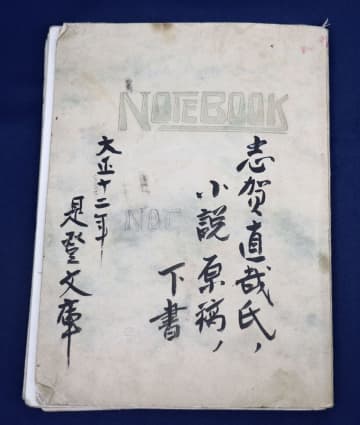 NOTEBOOK
志賀直哉氏、
小説原稿、
下書
NOT
大正十二年
是登文庫